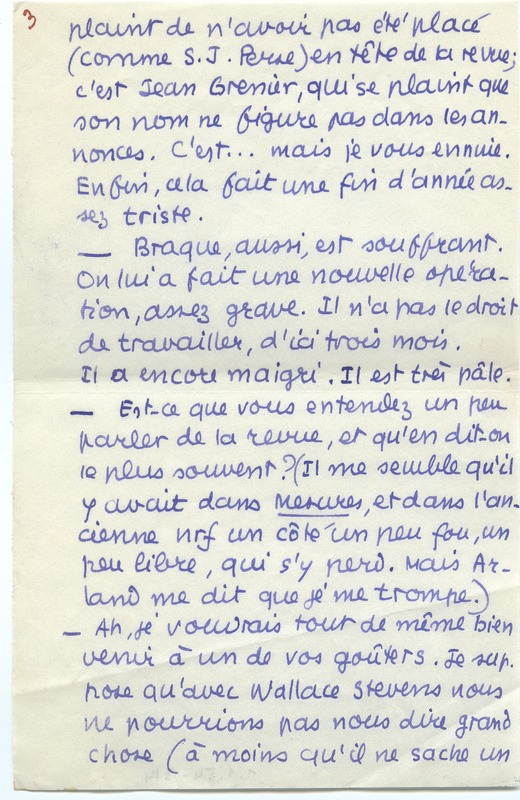 3
plaint de n'avoir pas été placé
(comme S. J. Perse) en tête de la revue;
c'est Jean Grenier, qui se plaint que
son nom ne figure pas dans les an-
nonces. C'est... mais je vous ennuie.
Enfin, cela fait une fin d'année as-
sez triste.
— Braque, aussi, est souffrant.
On lui a fait une nouvelle opéra-
tion, assez grave. Il n'a pas le droit
de travailler, d'ici trois mois.
Il a encore maigri. Il est très pâle.
— Est-ce que vous entendez un peu
parler de la revue, et qu'en dit-on
le plus souvent? (Il me semble qu'il
y avait dans Mesures, et dans l'an-
cienne nrf un côté un peu fou, un
peu libre, qui s'y perd. Mais Ar-
land me dit que je me trompe.)
— Ah, je voudrais tout de même bien
venir à un de vos goûters. Je sup-
pose qu'avec Wallace Stevens nous
ne pourrions pas nous dire grand
chose (à moins qu'il ne sache un